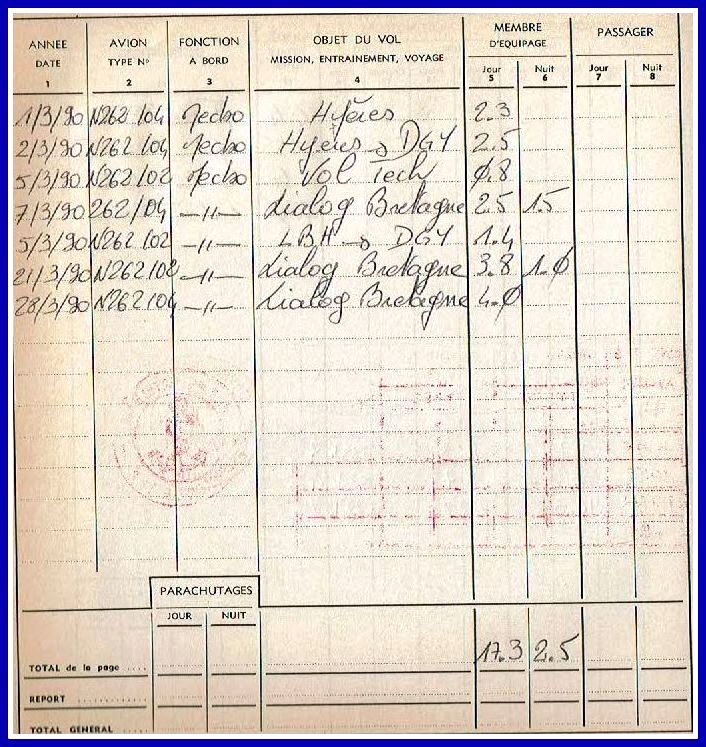 ANNEE DATE 1 AVION TYPE N° 2 FONCTION A BORD 3 OBJET DU VOL MISSION, ENTRAINEMENT, VOYAGE 4 MEMBRE D'EQUIPAGE Jour 5 Nuit 6 PASSAGER Jour 7 Nuit 8
1/3/90 N262/04 Mecbo Hyères 2.3
2/3/90 N262/04 Mecbo Hyères → DGY 2.5
5/3/90 N262/02 Mecbo Vol Tech 0.8
7/3/90 262/04 —〃— Dialog Bretagne 2.5 1.5
5/3/90 N262/02 —〃— LBH → DGY 1.4
21/3/90 N262/02 —〃— Dialog Bretagne 3.8 1.0
28/3/90 N262/04 —〃— Dialog Bretagne 4.0
PARACHUTAGES
JOUR NUIT
TOTAL de la page .... 17.3 2.5
REPORT ............
TOTAL GENERAL .....